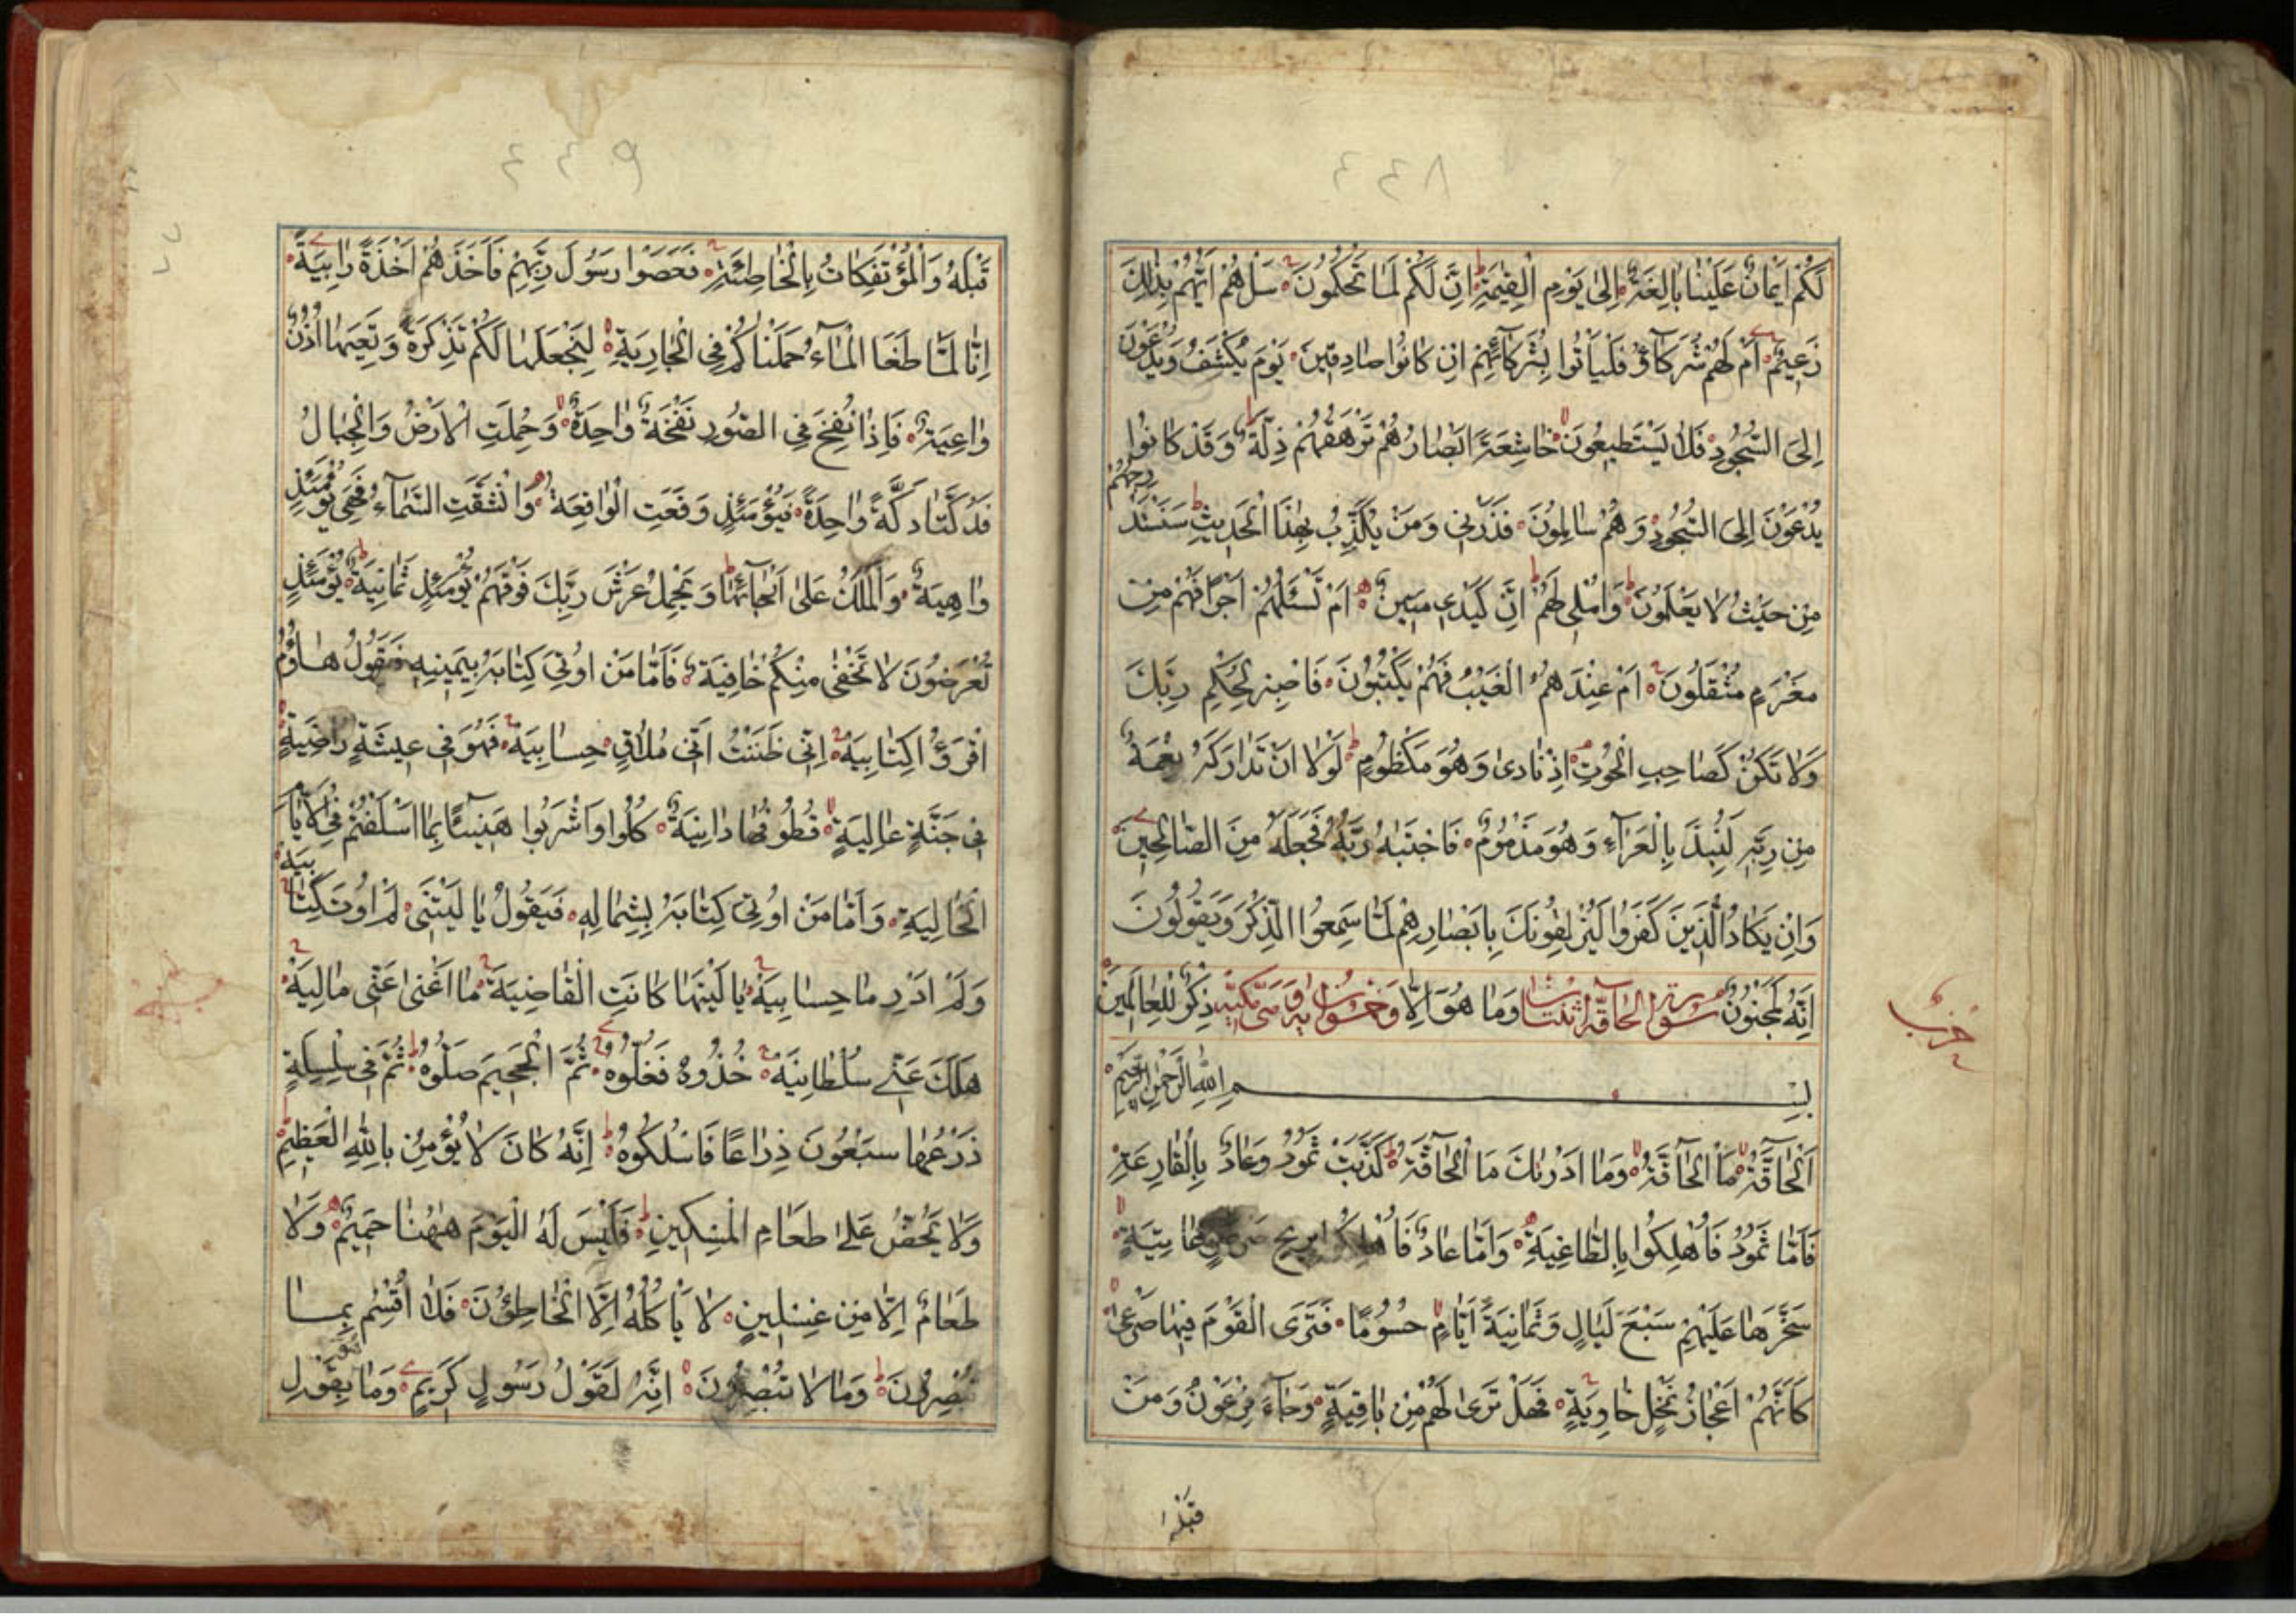 ٤٤٨
لَكُمْ اَيْمَانٌ عَلَيْنَا بَالِغَةٌ اِلىٰ يَوْمِ الْقِيٰمَةِ اِنَّ لَكُمْ لَمَا تَحْكُمُونَ سَلْهُمْ اَيُّهُمْ بِذٰلِكَ
زَعِيمٌ اَمْ لَهُمْ شُرَكَآؤُ فَلْيَأْتُوا بِشُرَكَآئِهِمْ اِنْ كَانُوا صَادِقِينَ يَوْمَ يُكْشَفُ وَيُدْعَوْنَ
اِلَى السُّجُودِ فَلَا يَسْتَطِيعُونَ خَاشِعَةً اَبْصَارُهُمْ تَرْهَقُهُمْ ذِلَّةٌ وَقَدْ كَانُوا
يُدْعَوْنَ اِلَى السُّجُودِ وَهُمْ سَالِمُونَ فَذَرْنِي وَمَنْ يُكَذِّبُ بِهٰذَا الْحَدِيثِ سَنَسْتَدْرِجُهُمْ
مِنْ حَيْثُ لَا يَعْلَمُونَ وَاُمْلِي لَهُمْ اِنَّ كَيْدِي مَتِينٌ اَمْ تَسْئَلُهُمْ اَجْرًا فَهُمْ مِنْ
مَغْرَمٍ مُثْقَلُونَ اَمْ عِنْدَهُمُ الْغَيْبُ فَهُمْ يَكْتُبُونَ فَاصْبِرْ لِحُكْمِ رَبِّكَ
وَلَا تَكُنْ كَصَاحِبِ الْحُوتِ اِذْ نَادىٰ وَهُوَ مَكْظُومٌ لَوْلَا اَنْ تَدَارَكَهُ نِعْمَةٌ
مِنْ رَبِّهِ لَنُبِذَ بِالْعَرَآءِ وَهُوَ مَذْمُومٌ فَاجْتَبٰهُ رَبُّهُ فَجَعَلَهُ مِنَ الصَّالِحِينَ
وَاِنْ يَكَادُ الَّذِينَ كَفَرُوا لَيُزْلِقُونَكَ بِاَبْصَارِهِمْ لَمَّا سَمِعُوا الذِّكْرَ وَيَقُولُونَ
اِنَّهُ لَمَجْنُونٌ سورة الحاقة اثنتان وَمَا هُوَ اِلَّا وخمسون اية وهي مكية ذِكْرٌ لِلْعَالَمِينَ
حزب
بِسْمِ اللّٰهِ الرَّحْمٰنِ الرَّحِيمِ
اَلْحَآقَّةُ مَا الْحَآقَّةُ وَمَا اَدْرٰيكَ مَا الْحَآقَّةُ كَذَّبَتْ ثَمُودُ وَعَادٌ بِالْقَارِعَةِ
فَاَمَّا ثَمُودُ فَاُهْلِكُوا بِالطَّاغِيَةِ وَاَمَّا عَادٌ فَاُهْلِكُوا بِرِيحٍ صَرْصَرٍ عَاتِيَةٍ
سَخَّرَهَا عَلَيْهِمْ سَبْعَ لَيَالٍ وَثَمَانِيَةَ اَيَّامٍ حُسُومًا فَتَرَى الْقَوْمَ فِيهَا صَرْعىٰ
كَاَنَّهُمْ اَعْجَازُ نَخْلٍ خَاوِيَةٍ فَهَلْ تَرىٰ لَهُمْ مِنْ بَاقِيَةٍ وَجَآءَ فِرْعَوْنُ وَمَنْ
قَبْلَهُ
٤٤٩
قَبْلَهُ وَالْمُؤْتَفِكَاتُ بِالْخَاطِئَةِ فَعَصَوْا رَسُولَ رَبِّهِمْ فَاَخَذَهُمْ اَخْذَةً رَابِيَةً
اِنَّا لَمَّا طَغَا الْمَآءُ حَمَلْنَاكُمْ فِي الْجَارِيَةِ لِنَجْعَلَهَا لَكُمْ تَذْكِرَةً وَتَعِيَهَا اُذُنٌ
وَاعِيَةٌ فَاِذَا نُفِخَ فِي الصُّورِ نَفْخَةٌ وَاحِدَةٌ وَحُمِلَتِ الْاَرْضُ وَالْجِبَالُ
فَدُكَّتَا دَكَّةً وَاحِدَةً فَيَوْمَئِذٍ وَقَعَتِ الْوَاقِعَةُ وَانْشَقَّتِ السَّمَآءُ فَهِيَ يَوْمَئِذٍ
وَاهِيَةٌ وَالْمَلَكُ عَلىٰ اَرْجَآئِهَا وَيَحْمِلُ عَرْشَ رَبِّكَ فَوْقَهُمْ يَوْمَئِذٍ ثَمَانِيَةٌ يَوْمَئِذٍ
تُعْرَضُونَ لَا تَخْفٰى مِنْكُمْ خَافِيَةٌ فَاَمَّا مَنْ اُوتِيَ كِتَابَهُ بِيَمِينِهِ فَيَقُولُ هَاؤُمُ
اقْرَؤُا كِتَابِيَهْ اِنِّي ظَنَنْتُ اَنِّي مُلَاقٍ حِسَابِيَهْ فَهُوَ فِي عِيشَةٍ رَاضِيَةٍ
فِي جَنَّةٍ عَالِيَةٍ قُطُوفُهَا دَانِيَةٌ كُلُوا وَاشْرَبُوا هَنِيئًا بِمَا اَسْلَفْتُمْ فِي الْاَيَّامِ
الْخَالِيَةِ وَاَمَّا مَنْ اُوتِيَ كِتَابَهُ بِشِمَالِهِ فَيَقُولُ يَا لَيْتَنِي لَمْ اُوتَ كِتَابِيَهْ
وَلَمْ اَدْرِ مَا حِسَابِيَهْ يَا لَيْتَهَا كَانَتِ الْقَاضِيَةَ مَا اَغْنىٰ عَنِّي مَالِيَهْ
هَلَكَ عَنِّي سُلْطَانِيَهْ خُذُوهُ فَغُلُّوهُ ثُمَّ الْجَحِيمَ صَلُّوهُ ثُمَّ فِي سِلْسِلَةٍ
ذَرْعُهَا سَبْعُونَ ذِرَاعًا فَاسْلُكُوهُ اِنَّهُ كَانَ لَا يُؤْمِنُ بِاللّٰهِ الْعَظِيمِ
وَلَا يَحُضُّ عَلىٰ طَعَامِ الْمِسْكِينِ فَلَيْسَ لَهُ الْيَوْمَ هٰهُنَا حَمِيمٌ وَلَا
طَعَامٌ اِلَّا مِنْ غِسْلِينٍ لَا يَأْكُلُهُ اِلَّا الْخَاطِؤُنَ فَلَا اُقْسِمُ بِمَا
تُبْصِرُونَ وَمَا لَا تُبْصِرُونَ اِنَّهُ لَقَوْلُ رَسُولٍ كَرِيمٍ وَمَا هُوَ بِقَوْلِ